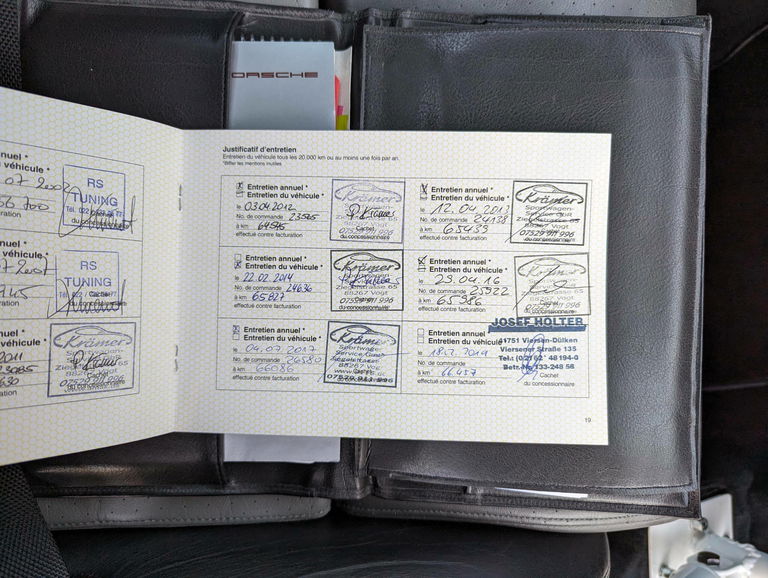 ORSCHE
nuel *
u véhicule *
07 2002
56 700
ration
RS
TUNING
nuel *
u véhicule *
ration
RS
TUNING
Cachet
nuel *
u véhicule *
2011
23085
ration
Krämer
Cachet
du concessionnaire
Justificatif d'entretien
Entretien du véhicule tous les 20.000 km ou au moins une fois par an.
*Biffer les mentions inutiles
Entretien annuel *
Entretien du véhicule *
le 03.04.2012
No. de commande 23575
à km
effectué contre facturation
Krämer
Cachet
du concessionnaire
Entretien annuel *
Entretien du véhicule *
le 12.04.2013
No. de commande 24138
à km 65433
effectué contre facturation
Krämer
Sportwagen
Service GbR
88267 Vogt
07529 911 996
du concessionnaire
Entretien annuel *
Entretien du véhicule *
le 22.02.2014
No. de commande 24636
à km 65827
effectué contre facturation
Krämer
88267 Vogt
07529 911 996
Entretien annuel *
Entretien du véhicule *
le 29.04.16
No. de commande 25922
à km 65986
effectué contre facturation
Krämer
Sportwagen
88267 Vogt
07529 911 996
Entretien annuel *
Entretien du véhicule *
le 04.07.2017
No. de commande 26580
à km 66086
effectué contre facturation
Krämer
Cachet
07529 911 996
Entretien annuel *
Entretien du véhicule *
le
No. de commande
à km 66.457
effectué contre facturation
JOSEF HOLTER
41751 Viersen-Dülken
Viersener Straße 135
Tel.: (02162) 48194-0
Betr.-Nr. 133-248 56
Cachet
du concessionnaire
19